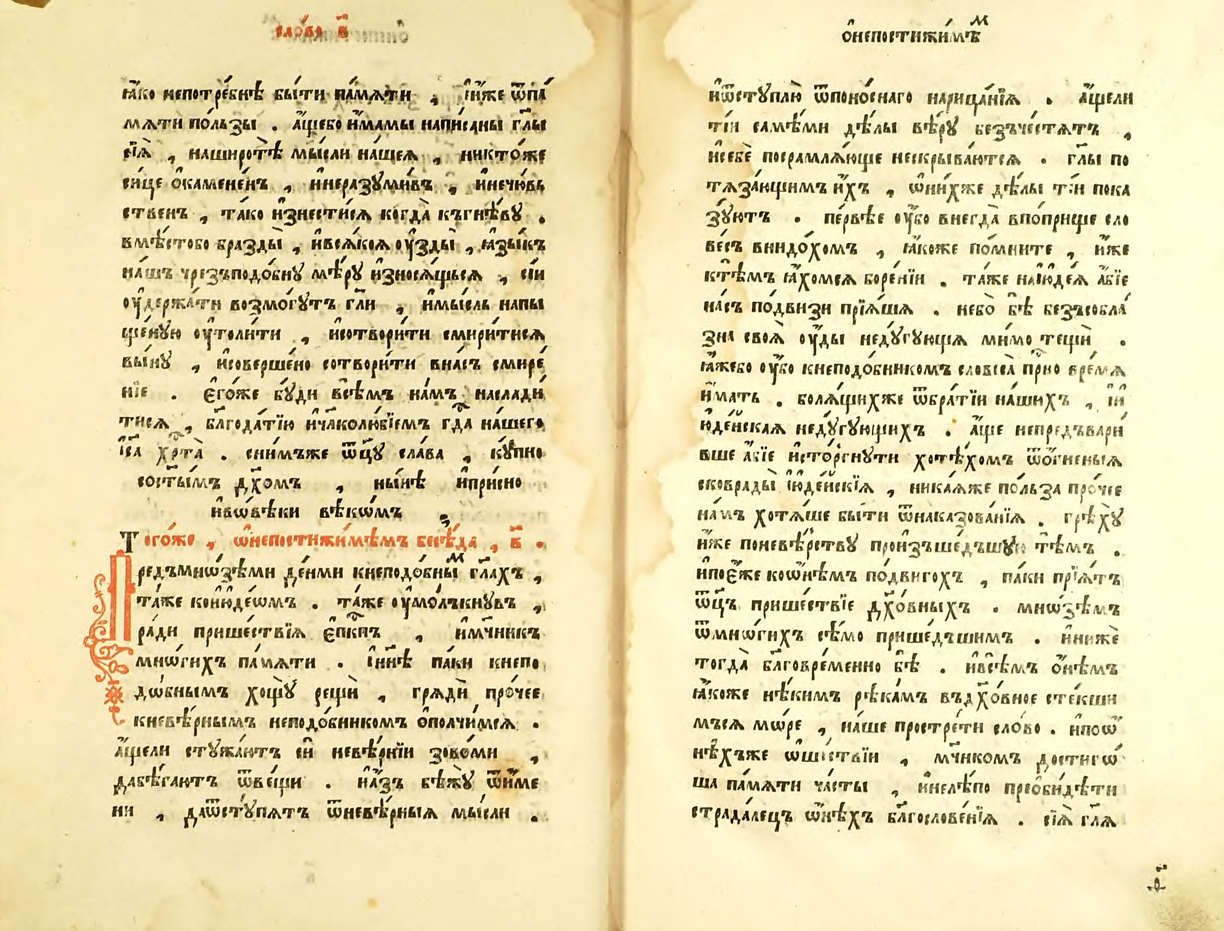 сло́во в҃
ꙗ҆́ко непотре́бнѣ бы́ти па́мѧти , і҆́иже ѿпа́
мѧти по́льзы . а҆́щебо и҆́мамы напи́саны гл҃ы
сїѧ̀ , наширотѣ̀ мы́сли на́шеѧ , никто́же
си́це ѻ҆камене́нъ , и҆неразꙋми́въ , и҆нечю́вь
ственъ , та́ко и҆знести́сѧ когда̀ къгнѣ́вꙋ .
вмѣ́стобо бразды̀ , и҆всѧ́коѧ оу҆зды̀ , ꙗ҆зы́къ
на́шъ чрезъподо́бнꙋ мѣ́рꙋ и҆зносѧ́щьсѧ , сїи
оу҆держа́ти возмо́гꙋтъ гл҃и , и҆мы́сль напы
ще́нꙋю оу҆толи́ти , и҆сотвори́ти смири́тисѧ
вы́нꙋ , и҆соверше́но сотвори́ти вна́съ смире́
нїе . є҆го́же бꙋ́ди всѣ́мъ на́мъ наслади́
тисѧ , благода́тїю и҆чл҃колю́бїемъ гдⷭ҇а на́шего
і҆са хрⷭ҇та̀ . сни́мъже ѿц҃ꙋ сла́ва , кꙋ́пно
состы́мъ дх҃омъ , ны́нѣ и҆при́сно
и҆вѡвѣ́ки вѣкѡ́мъ
Того́же , ѡ҆непостижи́мѣмъ бесѣ́да , в҃ .
Предъмно́зѣми де́нми кнеподо́бныⷨ гл҃ахъ ,
та́же коі҆юде́ѡмъ . та́же оу҆мо́лъкнꙋвъ ,
ра́ди прише́ствїѧ є҆пⷭ҇кпъ , и҆мч҃никъ
мно́гихъ па́мѧти . і҆нн҃ѣ па́ки кнепо
до́бнымъ хощꙋ̀ рещѝ , грѧдѝ про́чее
кневѣ́рнымъ неподо́бникомъ ѻ҆полчи́мсѧ .
а҆́щели стꙋжа́ютъ сѝ невѣ́рнїи зово́ми ,
дабѣ́гаютъ ѿве́щи . и҆а҆́зъ бѣжꙋ̀ ѿи҆́ме
ни , даѿстꙋ́пѧтъ ѿневѣ́рныѧ мы́сли .
ѻ҆непостижи́мѣⷨ
и҆ѿстꙋплю̀ ѿпоно́снаго нарица́нїѧ . а҆́щели
ті́и самѣ́ми дѣ́лы вѣ́рꙋ безъче́стѧтъ ,
и҆себѐ посрамлѧ́юще нескрыва́ютсѧ . гл҃ы по
тѧза́ющимъ и҆́хъ , ѡ҆ни́хже дѣ́лы ті́и пока
зꙋ́ютъ . пе́рвѣе оу҆́бо внегда̀ впо́прище сло
ве́съ внидо́хомъ , ꙗ҆́коже по́мните , и҆́же
ктѣ́мъ ꙗ҆́хомсѧ боре́нїи . та́же наі҆юде́ѧ а҆́бїе
на́съ по́двизи прїѧ́шѧ . небо̀ бѣ̀ безъсобла́
зна своѧ̀ оу҆́ды недꙋ́гꙋющѧ ми́мо тещѝ .
ꙗ҆́жебо оу҆́бо кнеподо́бникомъ словеса̀ при́но вре́мѧ
и҆́мать . болѧ́щихже ѿбра́тїи на́шихъ , і҆и
ю҆де́йскаѧ недꙋ́гꙋющихъ . а҆́ще непредъвари́
вше а҆́бїе и҆сто́ргнꙋти хотѣ́хомъ ѿѻ҆́гненыѧ
сковрады̀ і҆юде́йскїѧ , никаѧ́же по́льза про́чее
на́мъ хотѧ́ше бы́ти ѿнаказова́нїѧ . грѣхꙋ̀
и҆́же поневѣ́рствꙋ произъше́дъшꙋ тѣ́мъ .
и҆пое҆́же коѡ҆нѣ́мъ по́двигохъ , па́ки прїѧ́тъ
ѿц҃ъ прише́ствїе дх҃о́вныхъ . мно́зѣмъ
ѿмно́гихъ сѣ́мо прише́дъшимъ . и҆ниже́
тогда̀ бл҃говре́менно бѣ̀ . и҆всѣ́мъ ѻ҆нѣ́мъ
ꙗ҆́коже нѣ́кимъ рѣка́мъ въдх҃о́вное сте́кши
мъсѧ мо́ре , на́ше простре́ти сло́во . и҆поѿ
нѣ́хъже ѿше́ствїи , мч҃никомъ дости́гѡ
ша па́мѧти ча́сты , и҆нелѣ́по преѻби́дѣти
страда́лецъ ѡ҆нѣ́хъ бл҃гослове́нїѧ . сїѧ̀ гл҃ѧ